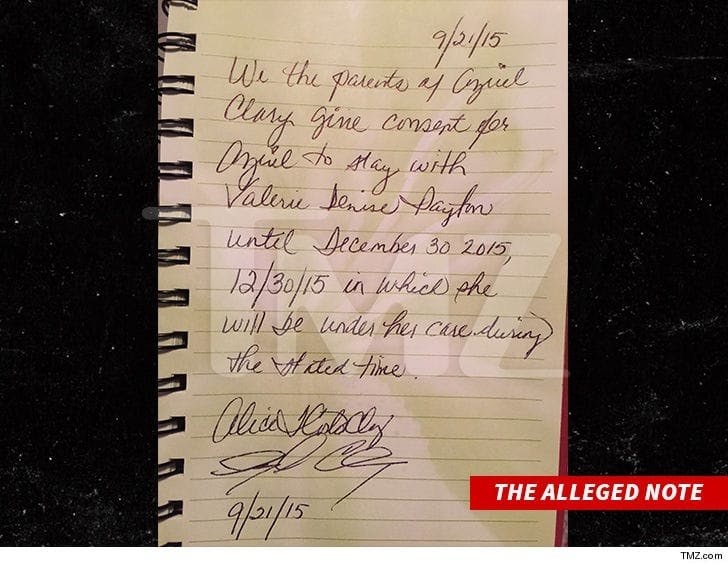 9/21/15
We the parents of Azriel
Clary give consent for
Azriel to stay with
Valerie Denise Payton
until December 30 2015,
12/30/15 in which she
will be under her care during
the stated time.
Alice
9/21/15
TMZ
THE ALLEGED NOTE
TMZ.com